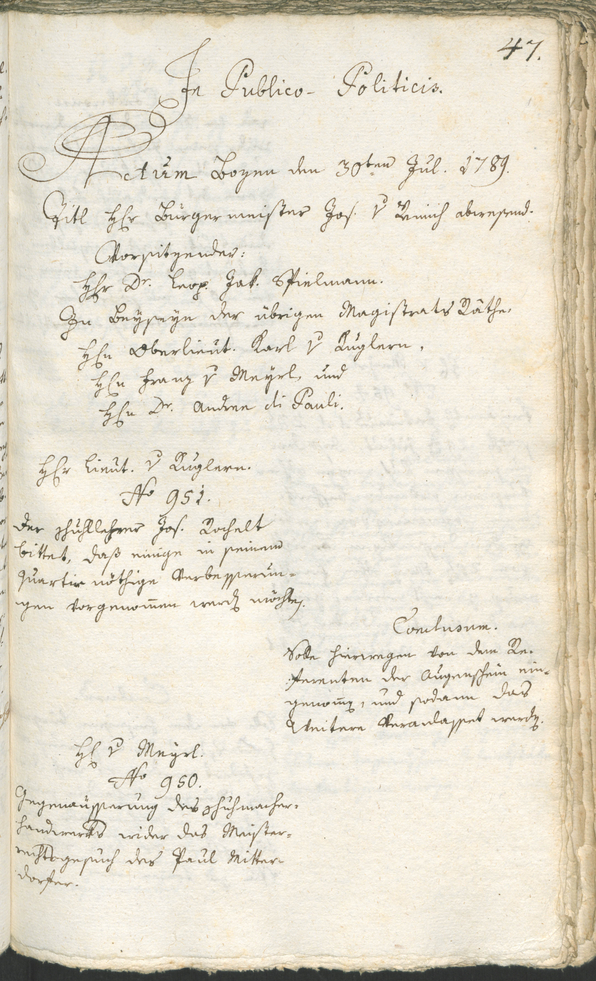 47.
In Publico-Politicis.
Actum Bozen den 30ten Jul. 1789.
Titl Hr Bürgermeister Jos. v abwesend.
Vorsitzender:
Hr Dr. Leop. Jak. Spielmann.
In Beyseyn der übrigen Magistrats Räthe
Hn Oberlieut. Karl v Kuglern,
Hn Franz v Meyrl, und
Hn Dr. Andree di Pauli.
Hr Lieut. v Kuglern.
No 951.
Der Schullehrer Jos. Rochelt
bittet, daß einige in seinem
Quartir nöthige Verbesserun-
gen vorgenommen werd möchte.
Conclusum.
Solle hierwegen von dem Re-
ferenten der Augenschein ein-
genomm, und sodann das
Weitere veranlasset werd.
H v Meyrl.
No 950.
Gegenäusserung des Schuhmacher-
handwerks wider das Meister-
rechtsgesuch des Paul Mitter-
dorfer.